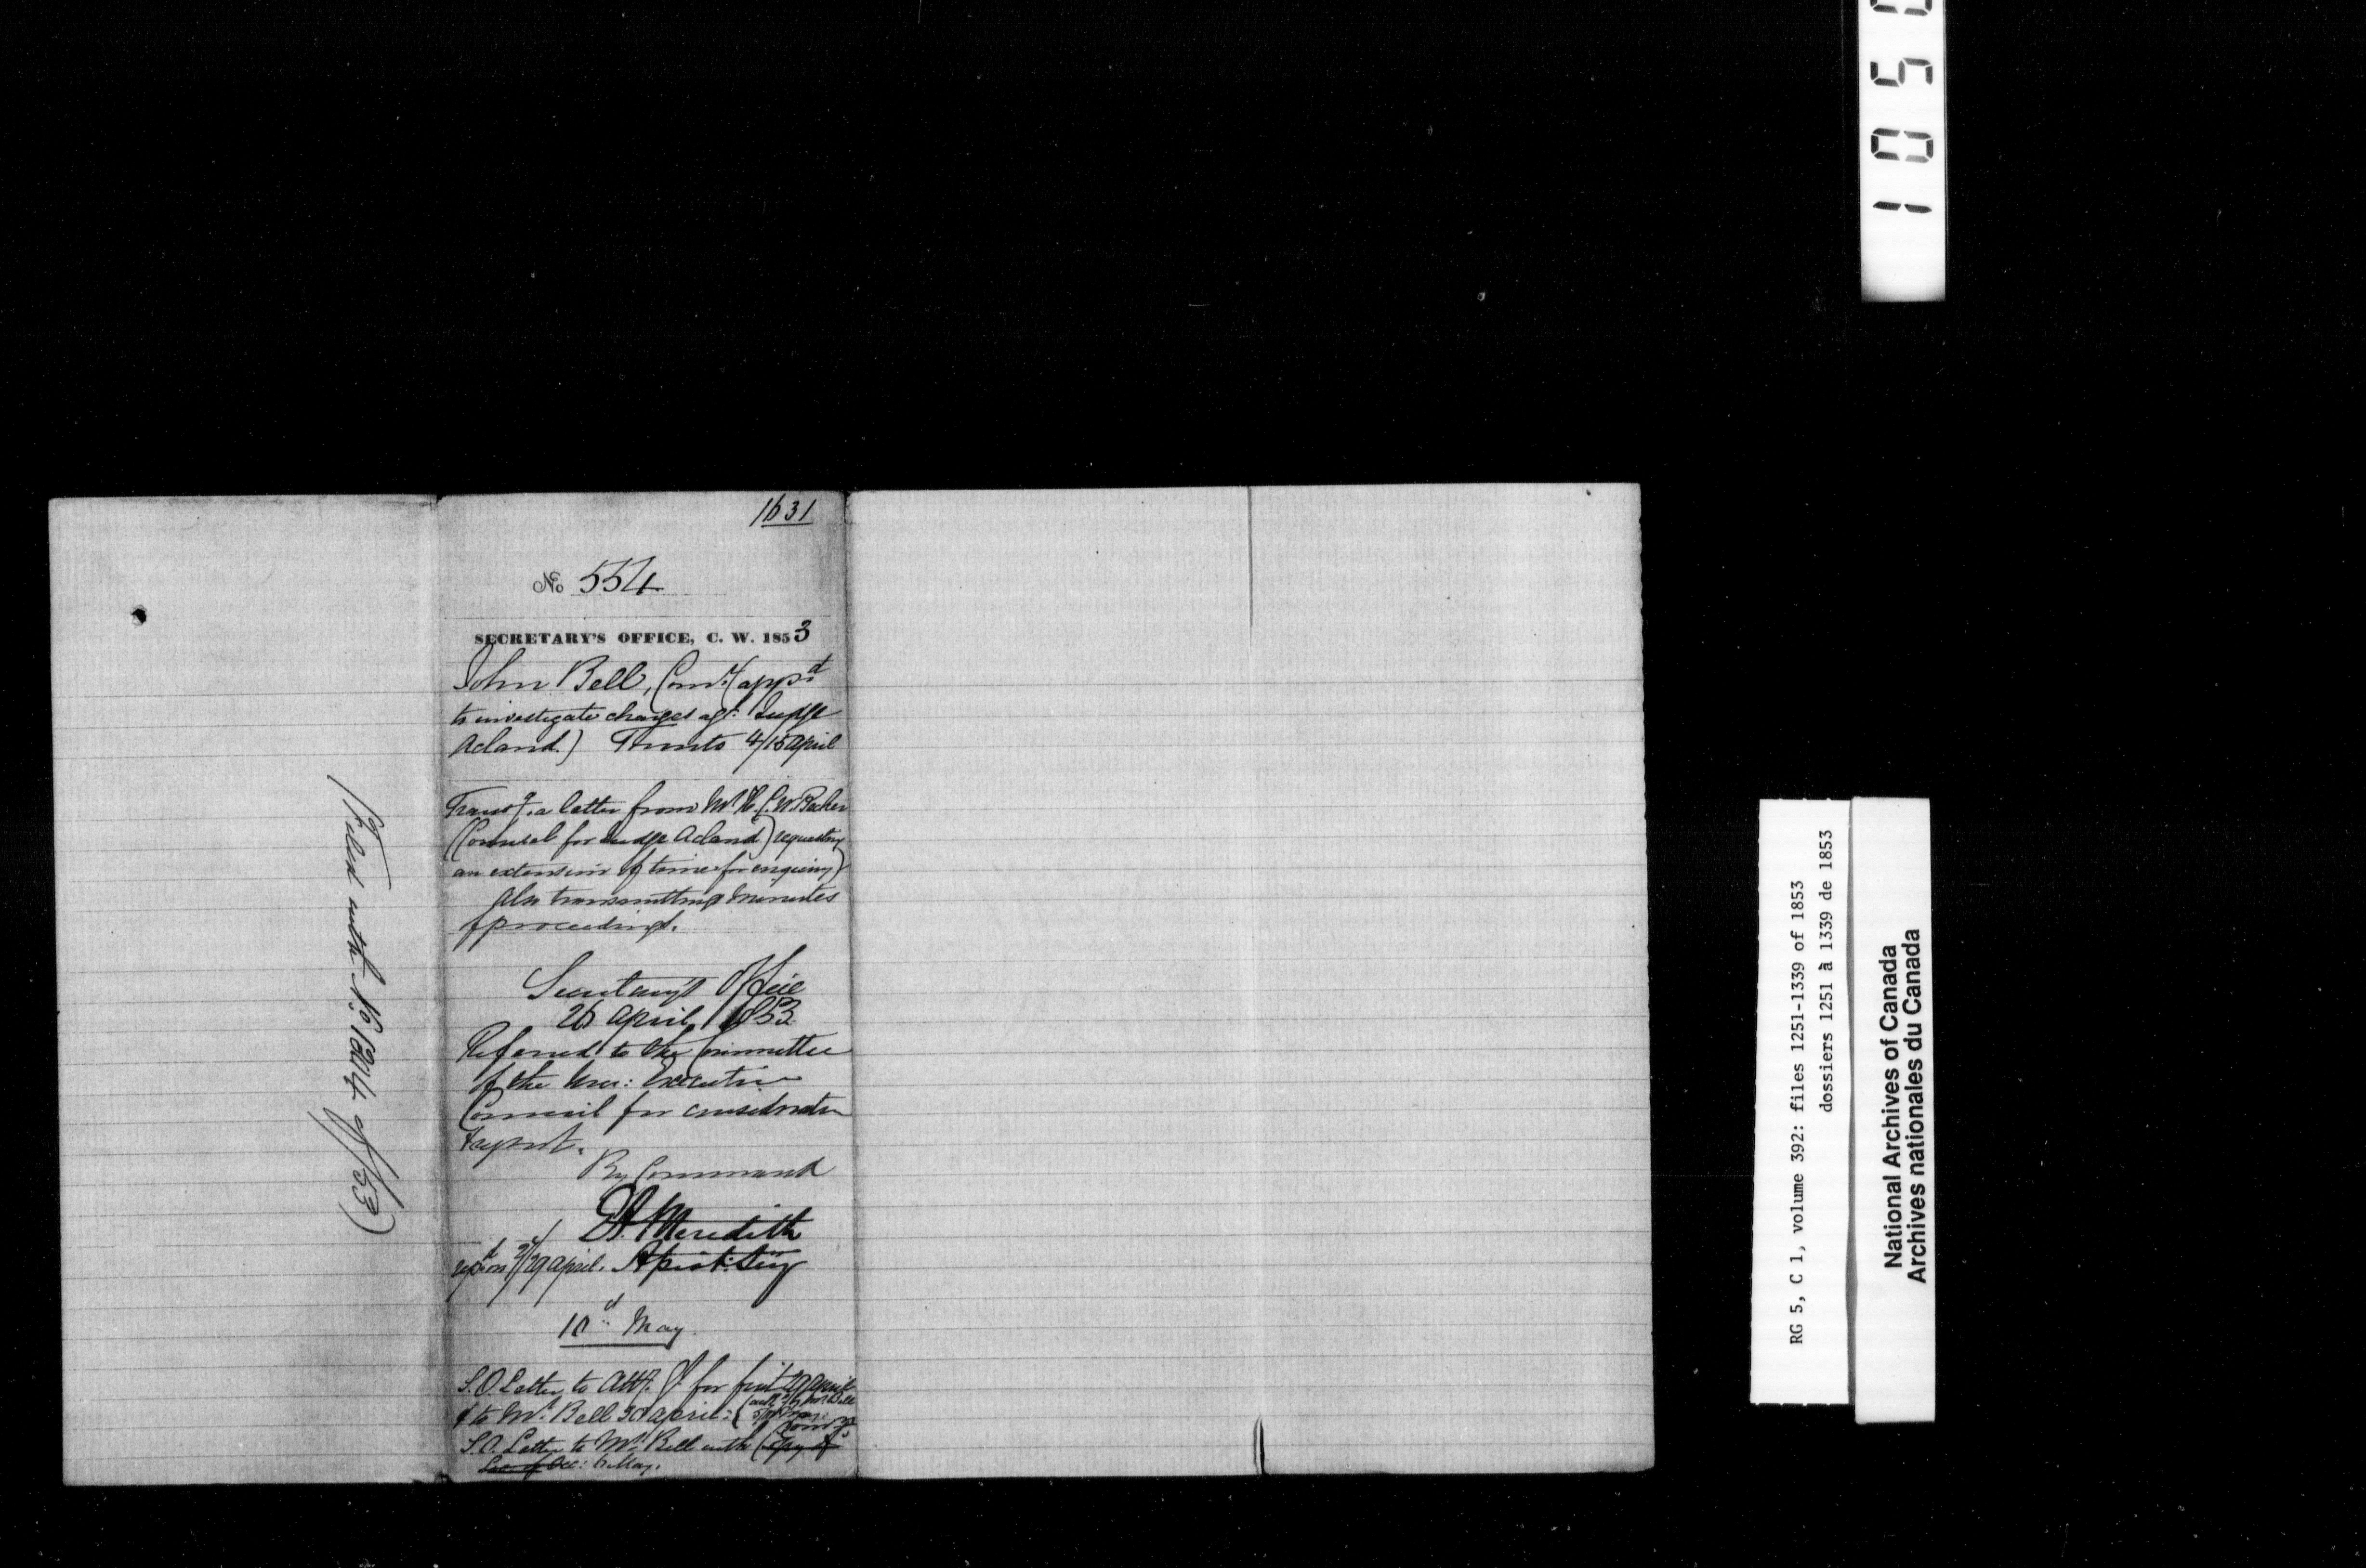 1631
No 554
SECRETARY'S OFFICE, C. W. 1853
John Bell, Comr. (appd.
to investigate charges agt. Judge
Acland.) Toronto 4/15 April
Transg. a letter from Mr. H. C. R. Becher
(Counsel for Judge Acland) requesting
an extension of time for enquiry)
Also transmitting minutes
of proceedings.
Secretary's Office
26 April 1853
Referred to the Committee
of the Executive
Council for consideration
& report.
By Command
E. A. Meredith
Asst. Secy
29 April.
10d. May
S.O. Letter to Atty. Gl. for 29 April
& to Mr. Bell 30 April
S.O. Letter to Mr. Bell with (Copy of
6 May.
(Filed with No. 1214 of /53)
1050
RG 5, C 1, volume 392: files 1251-1339 of 1853
dossiers 1251 à 1339 de 1853
National Archives of Canada
Archives nationales du Canada